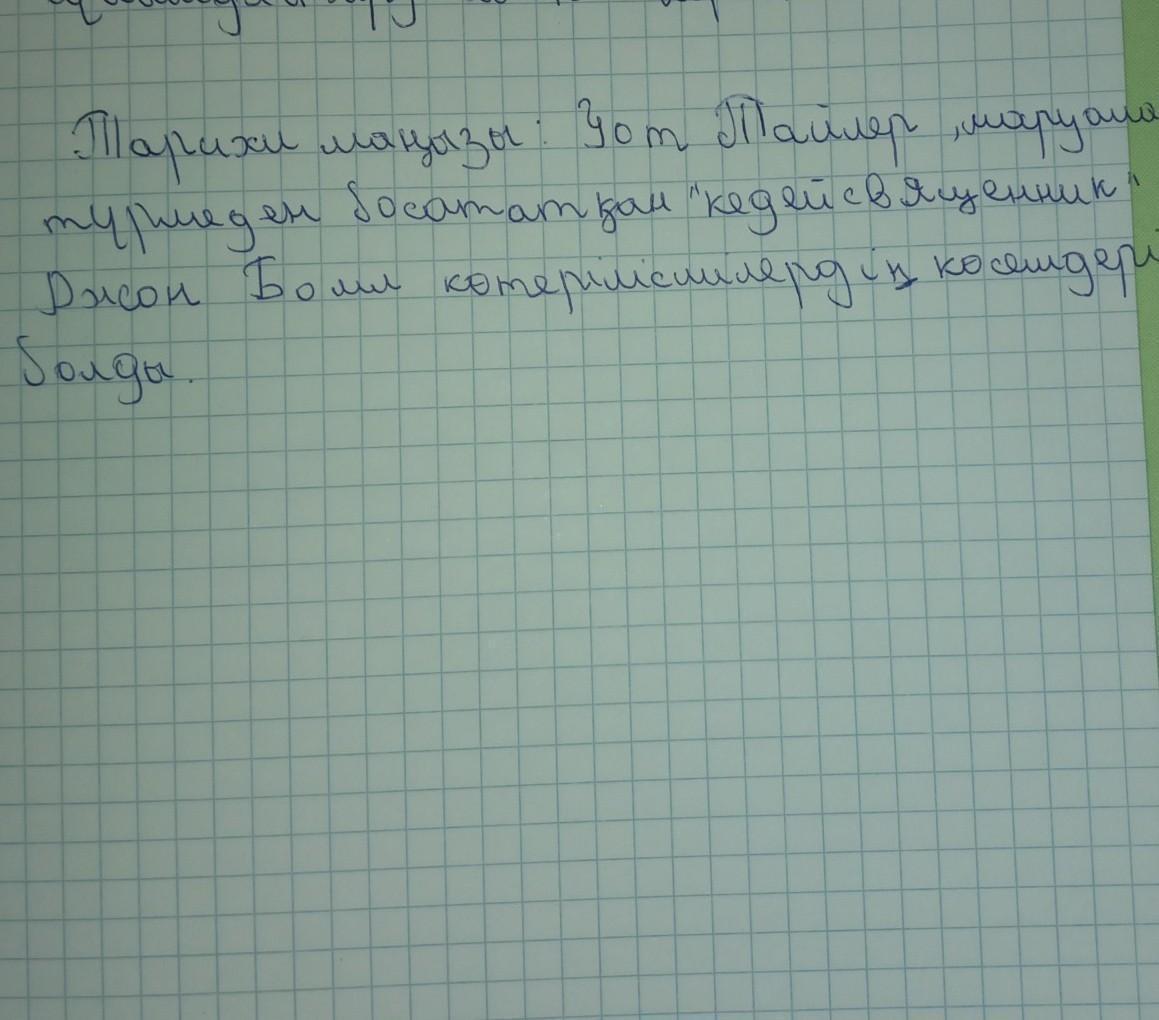 Тарихи маңызы: Уот Тайлер, шаруала
түрмеден босататқан "кедей священник"
Джон Болл көтерілісшілердің көсемдері
болды.